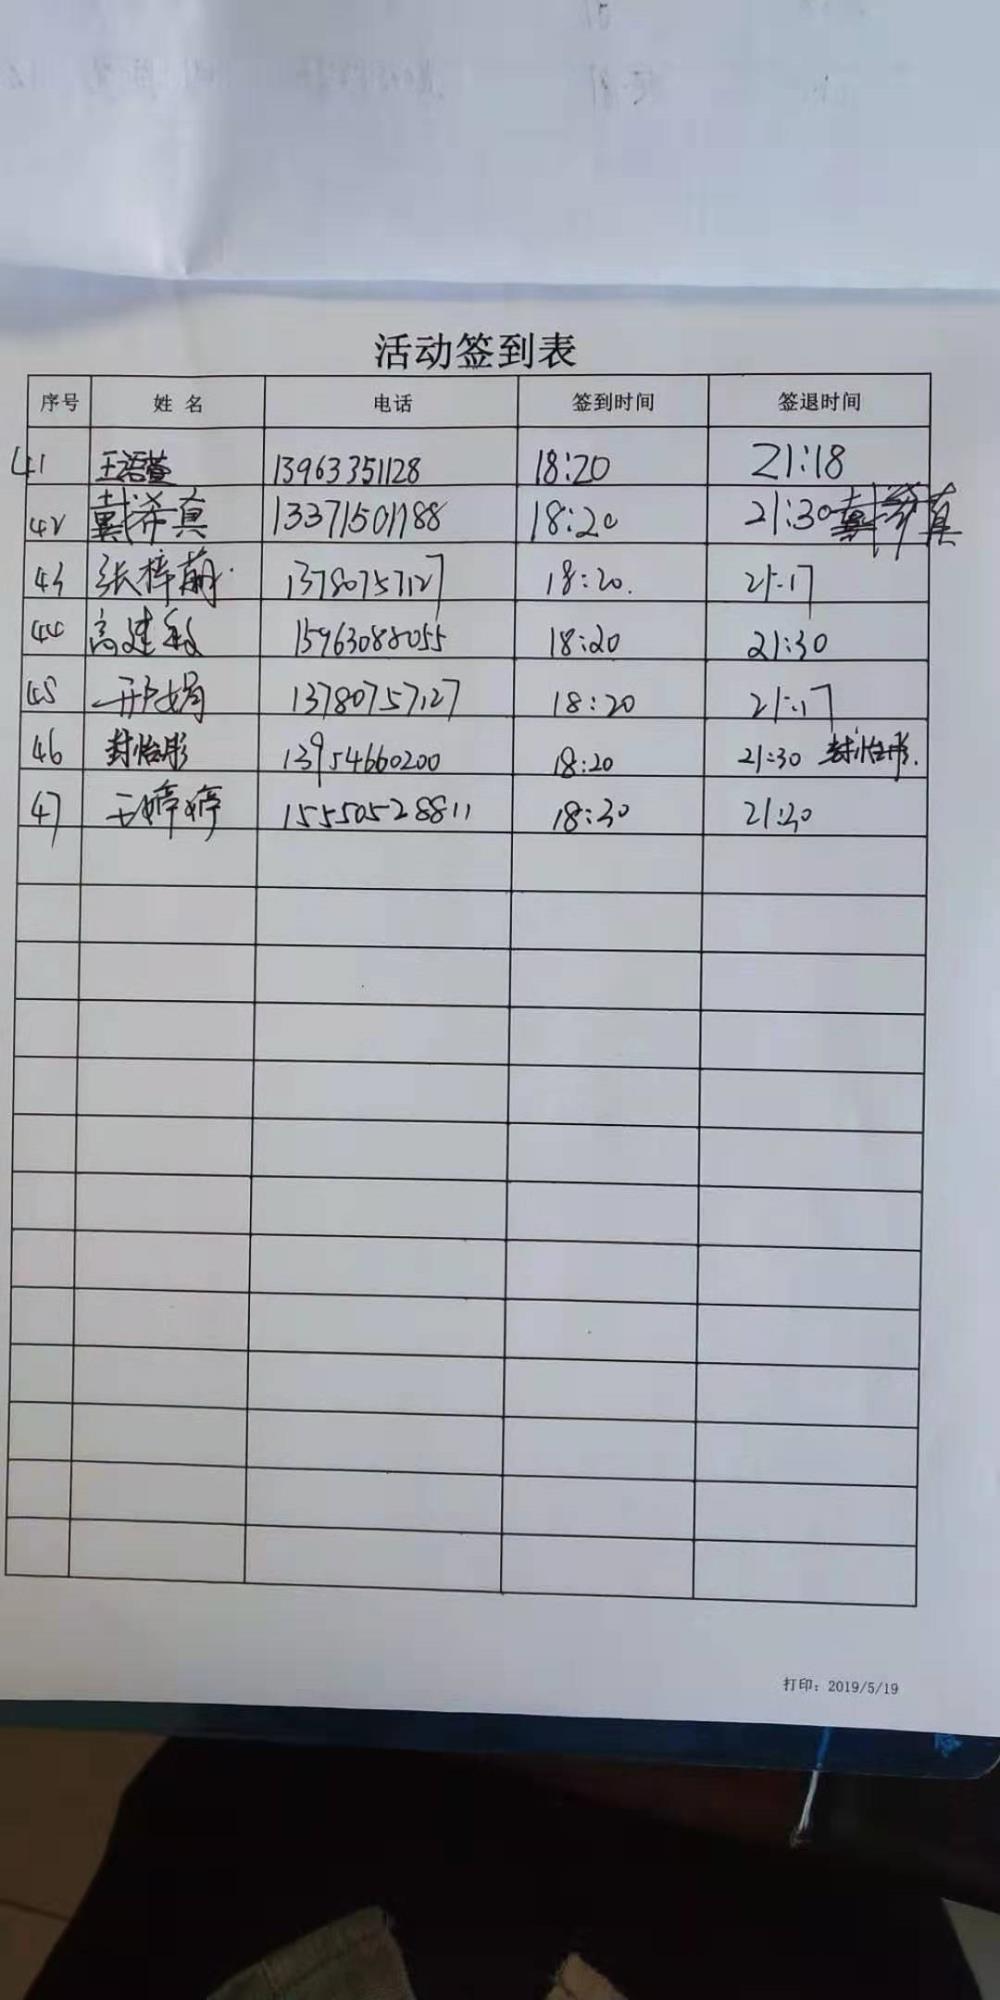 活动签到表
序号 姓名 电话 签到时间 签退时间
41 王浩萱 13963351128 18:20 21:18
42 戴希真 13371501188 18:20 21:30 戴希真
43 张梓萌 13780757127 18:20. 21:17
44 高建 15963088055 18:20 21:30
45 邢娟 13780757127 18:20 21:17
46 封怡彤 13954660200 18:20 21:30 封怡彤.
47 王婷婷 15550528811 18:30 21:30
打印：2019/5/19